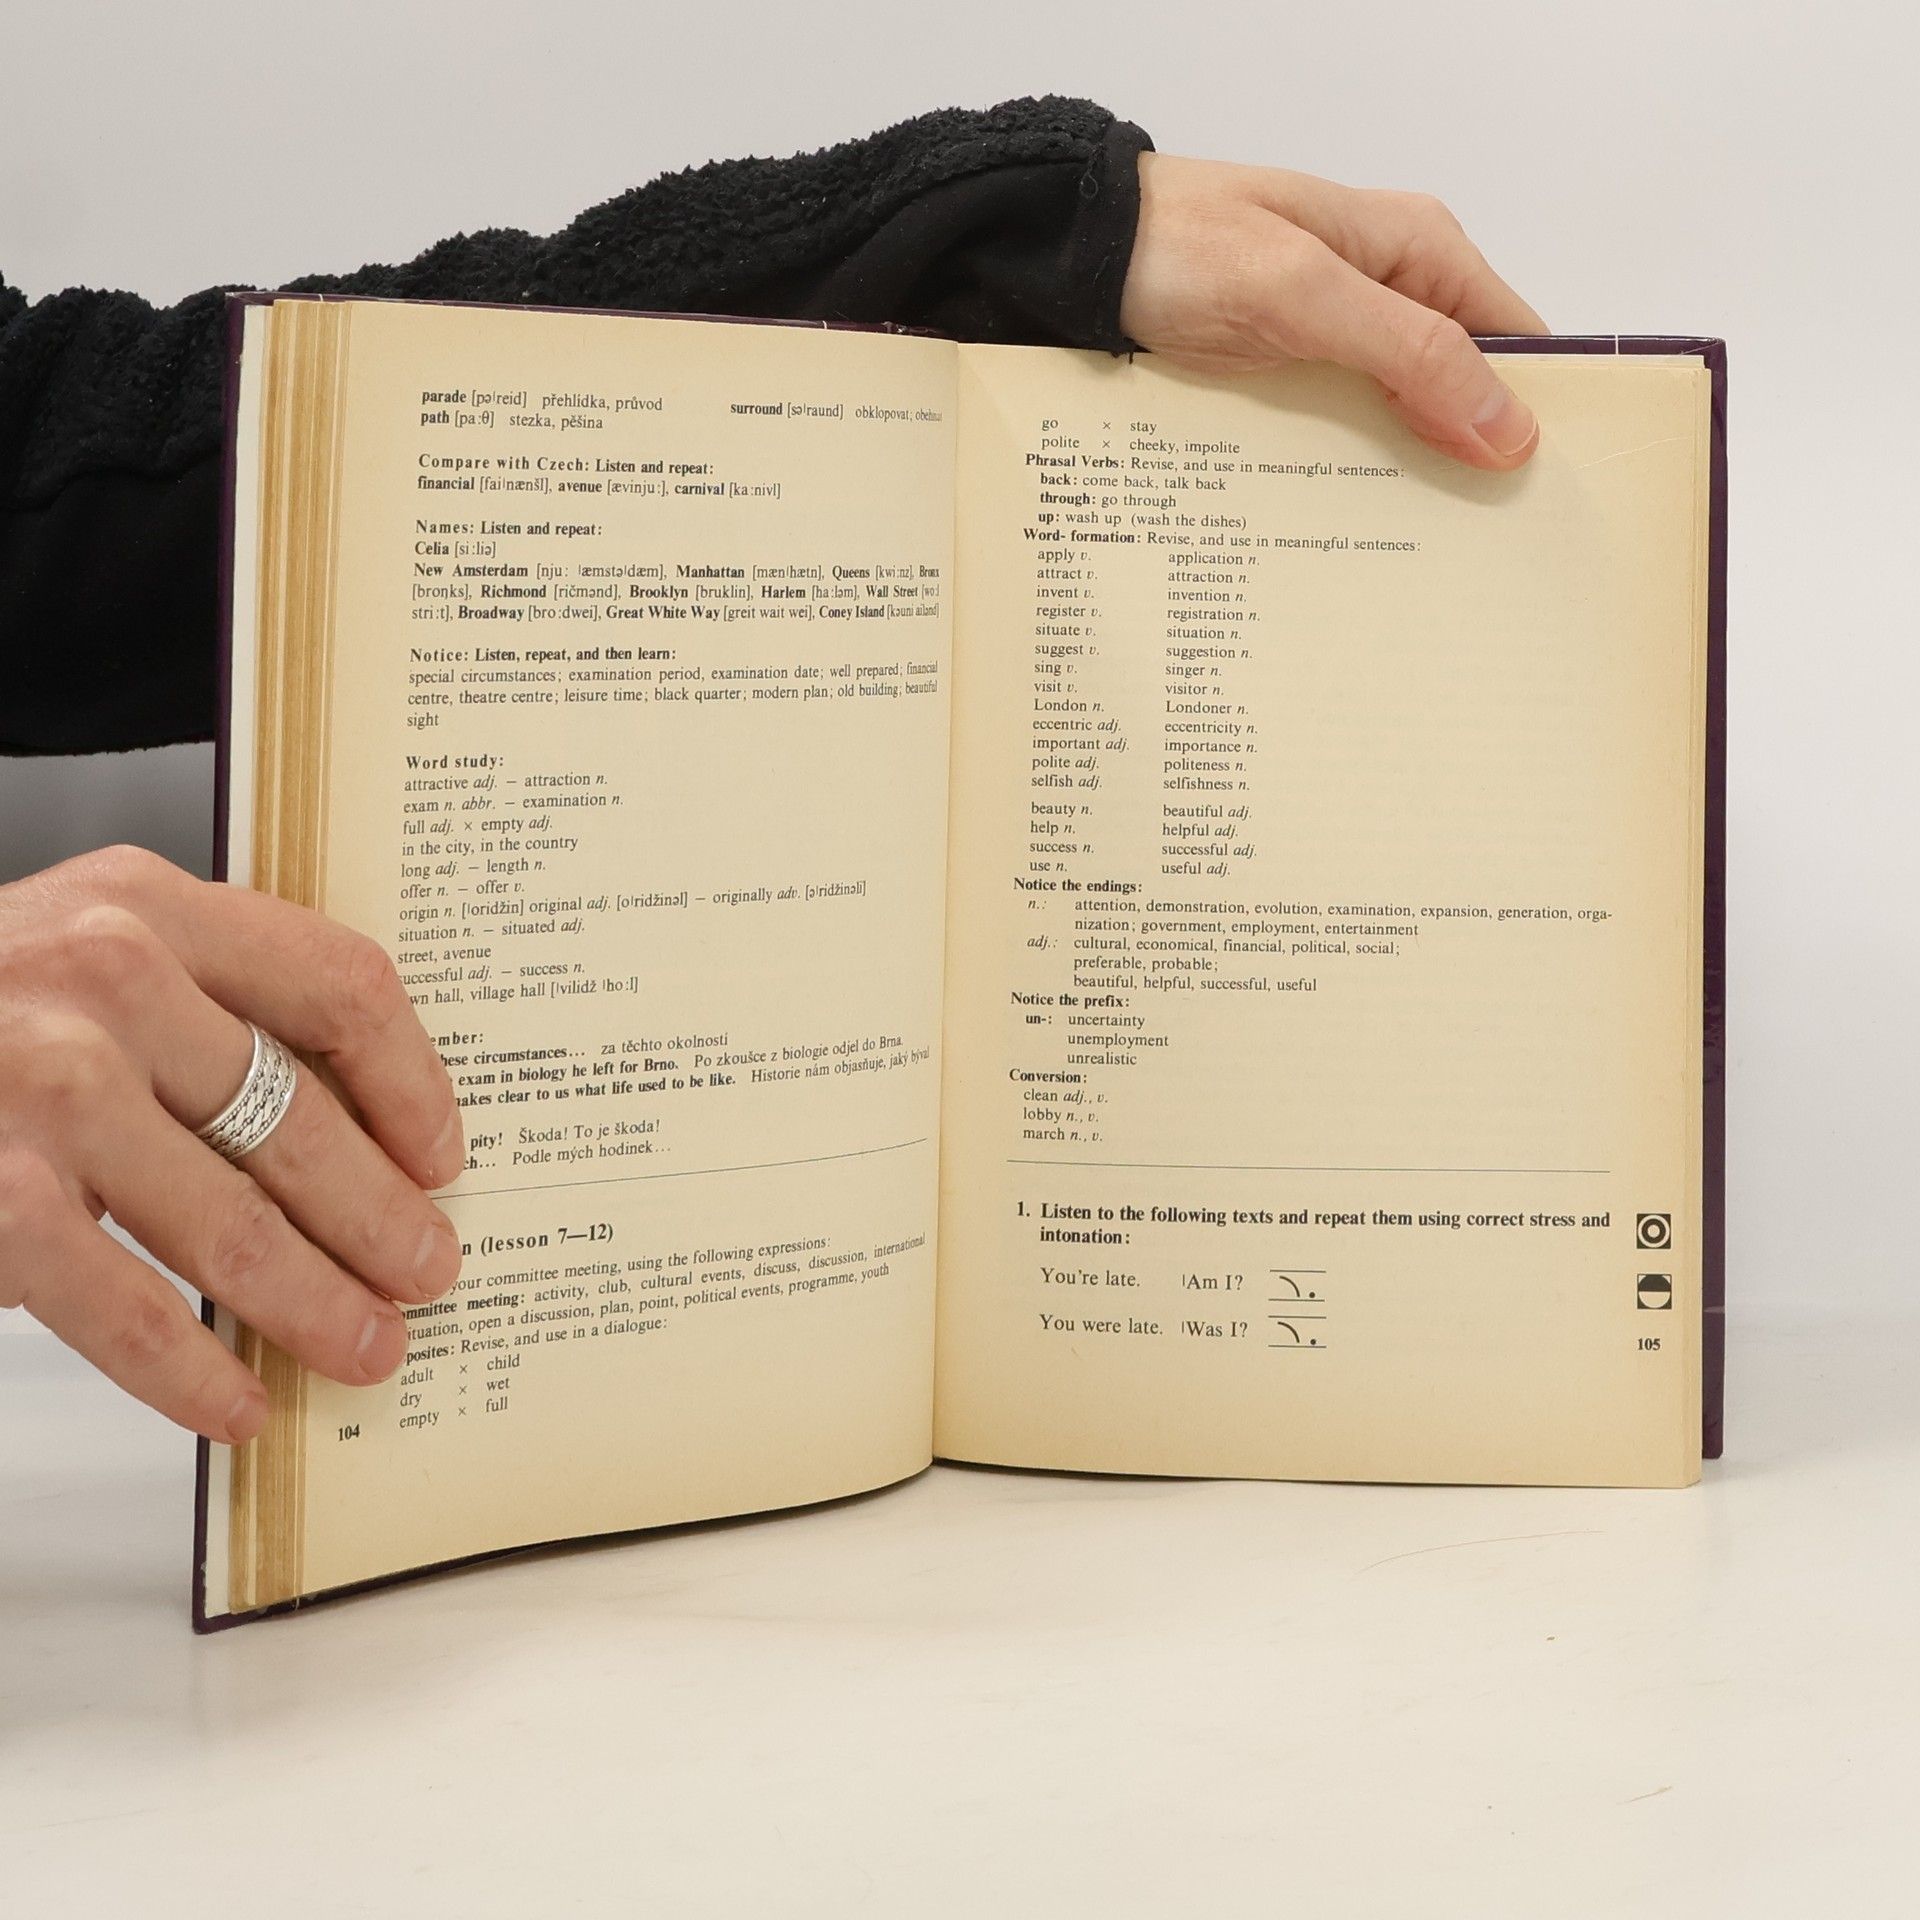 parade [pəˈreid] přehlídka, průvod
path [pa:θ] stezka, pěšina
surround [səˈraund] obklopovat;
Compare with Czech: Listen and repeat:
financial [faiˈnænšl], avenue [ævinju:], carnival [ka:nivl]
Names: Listen and repeat:
Celia [si:liə]
New Amsterdam [nju: ˈæmstəˈdæm], Manhattan [mænˈhætn], Queens [kwi:nz], Bronx
[broŋks], Richmond [ričmənd], Brooklyn [bruklin], Harlem [ha:ləm], Wall Street [wo:l
stri:t], Broadway [bro:dwei], Great White Way [greit wait wei], Coney Island [kəuni ailənd]
Notice: Listen, repeat, and then learn:
special circumstances; examination period, examination date; well prepared; financial
centre, theatre centre; leisure time; black quarter; modern plan; old building; beautiful
sight
Word study:
attractive adj. – attraction n.
exam n. abbr. – examination n.
full adj. × empty adj.
in the city, in the country
long adj. – length n.
offer n. – offer v.
origin n. [ˈoridžin] original adj. [oˈridžinəl] – originally adv. [əˈridžinəli]
situation n. – situated adj.
street, avenue
uccessful adj. – success n.
wn hall, village hall [ˈvilidž ˈho:l]
ember:
hese circumstances... za těchto okolností
exam in biology he left for Brno. Po zkoušce z biologie odjel do Brna.
akes clear to us what life used to be like. Historie nám objasňuje, jaký býval
pity! Škoda! To je škoda!
ch... Podle mých hodinek...
n (lesson 7—12)
your committee meeting, using the following expressions:
mmittee meeting: activity, club, cultural events, discuss, discussion, international
ituation, open a discussion, plan, point, political events, programme, youth
posites: Revise, and use in a dialogue:
adult × child
dry × wet
empty × full
104
go × stay
polite × cheeky, impolite
Phrasal Verbs: Revise, and use in meaningful sentences:
back: come back, talk back
through: go through
up: wash up (wash the dishes)
Word- formation: Revise, and use in meaningful sentences:
apply v. application n.
attract v. attraction n.
invent v. invention n.
register v. registration n.
situate v. situation n.
suggest v. suggestion n.
sing v. singer n.
visit v. visitor n.
London n. Londoner n.
eccentric adj. eccentricity n.
important adj. importance n.
polite adj. politeness n.
selfish adj. selfishness n.
beauty n. beautiful adj.
help n. helpful adj.
success n. successful adj.
use n. useful adj.
Notice the endings:
n.: attention, demonstration, evolution, examination, expansion, generation, orga-
nization; government, employment, entertainment
adj.: cultural, economical, financial, political, social;
preferable, probable;
beautiful, helpful, successful, useful
Notice the prefix:
un-: uncertainty
unemployment
unrealistic
Conversion:
clean adj., v.
lobby n., v.
march n., v.
1. Listen to the following texts and repeat them using correct stress and
intonation:
You're late. ˈAm I?
You were late. ˈWas I?
105